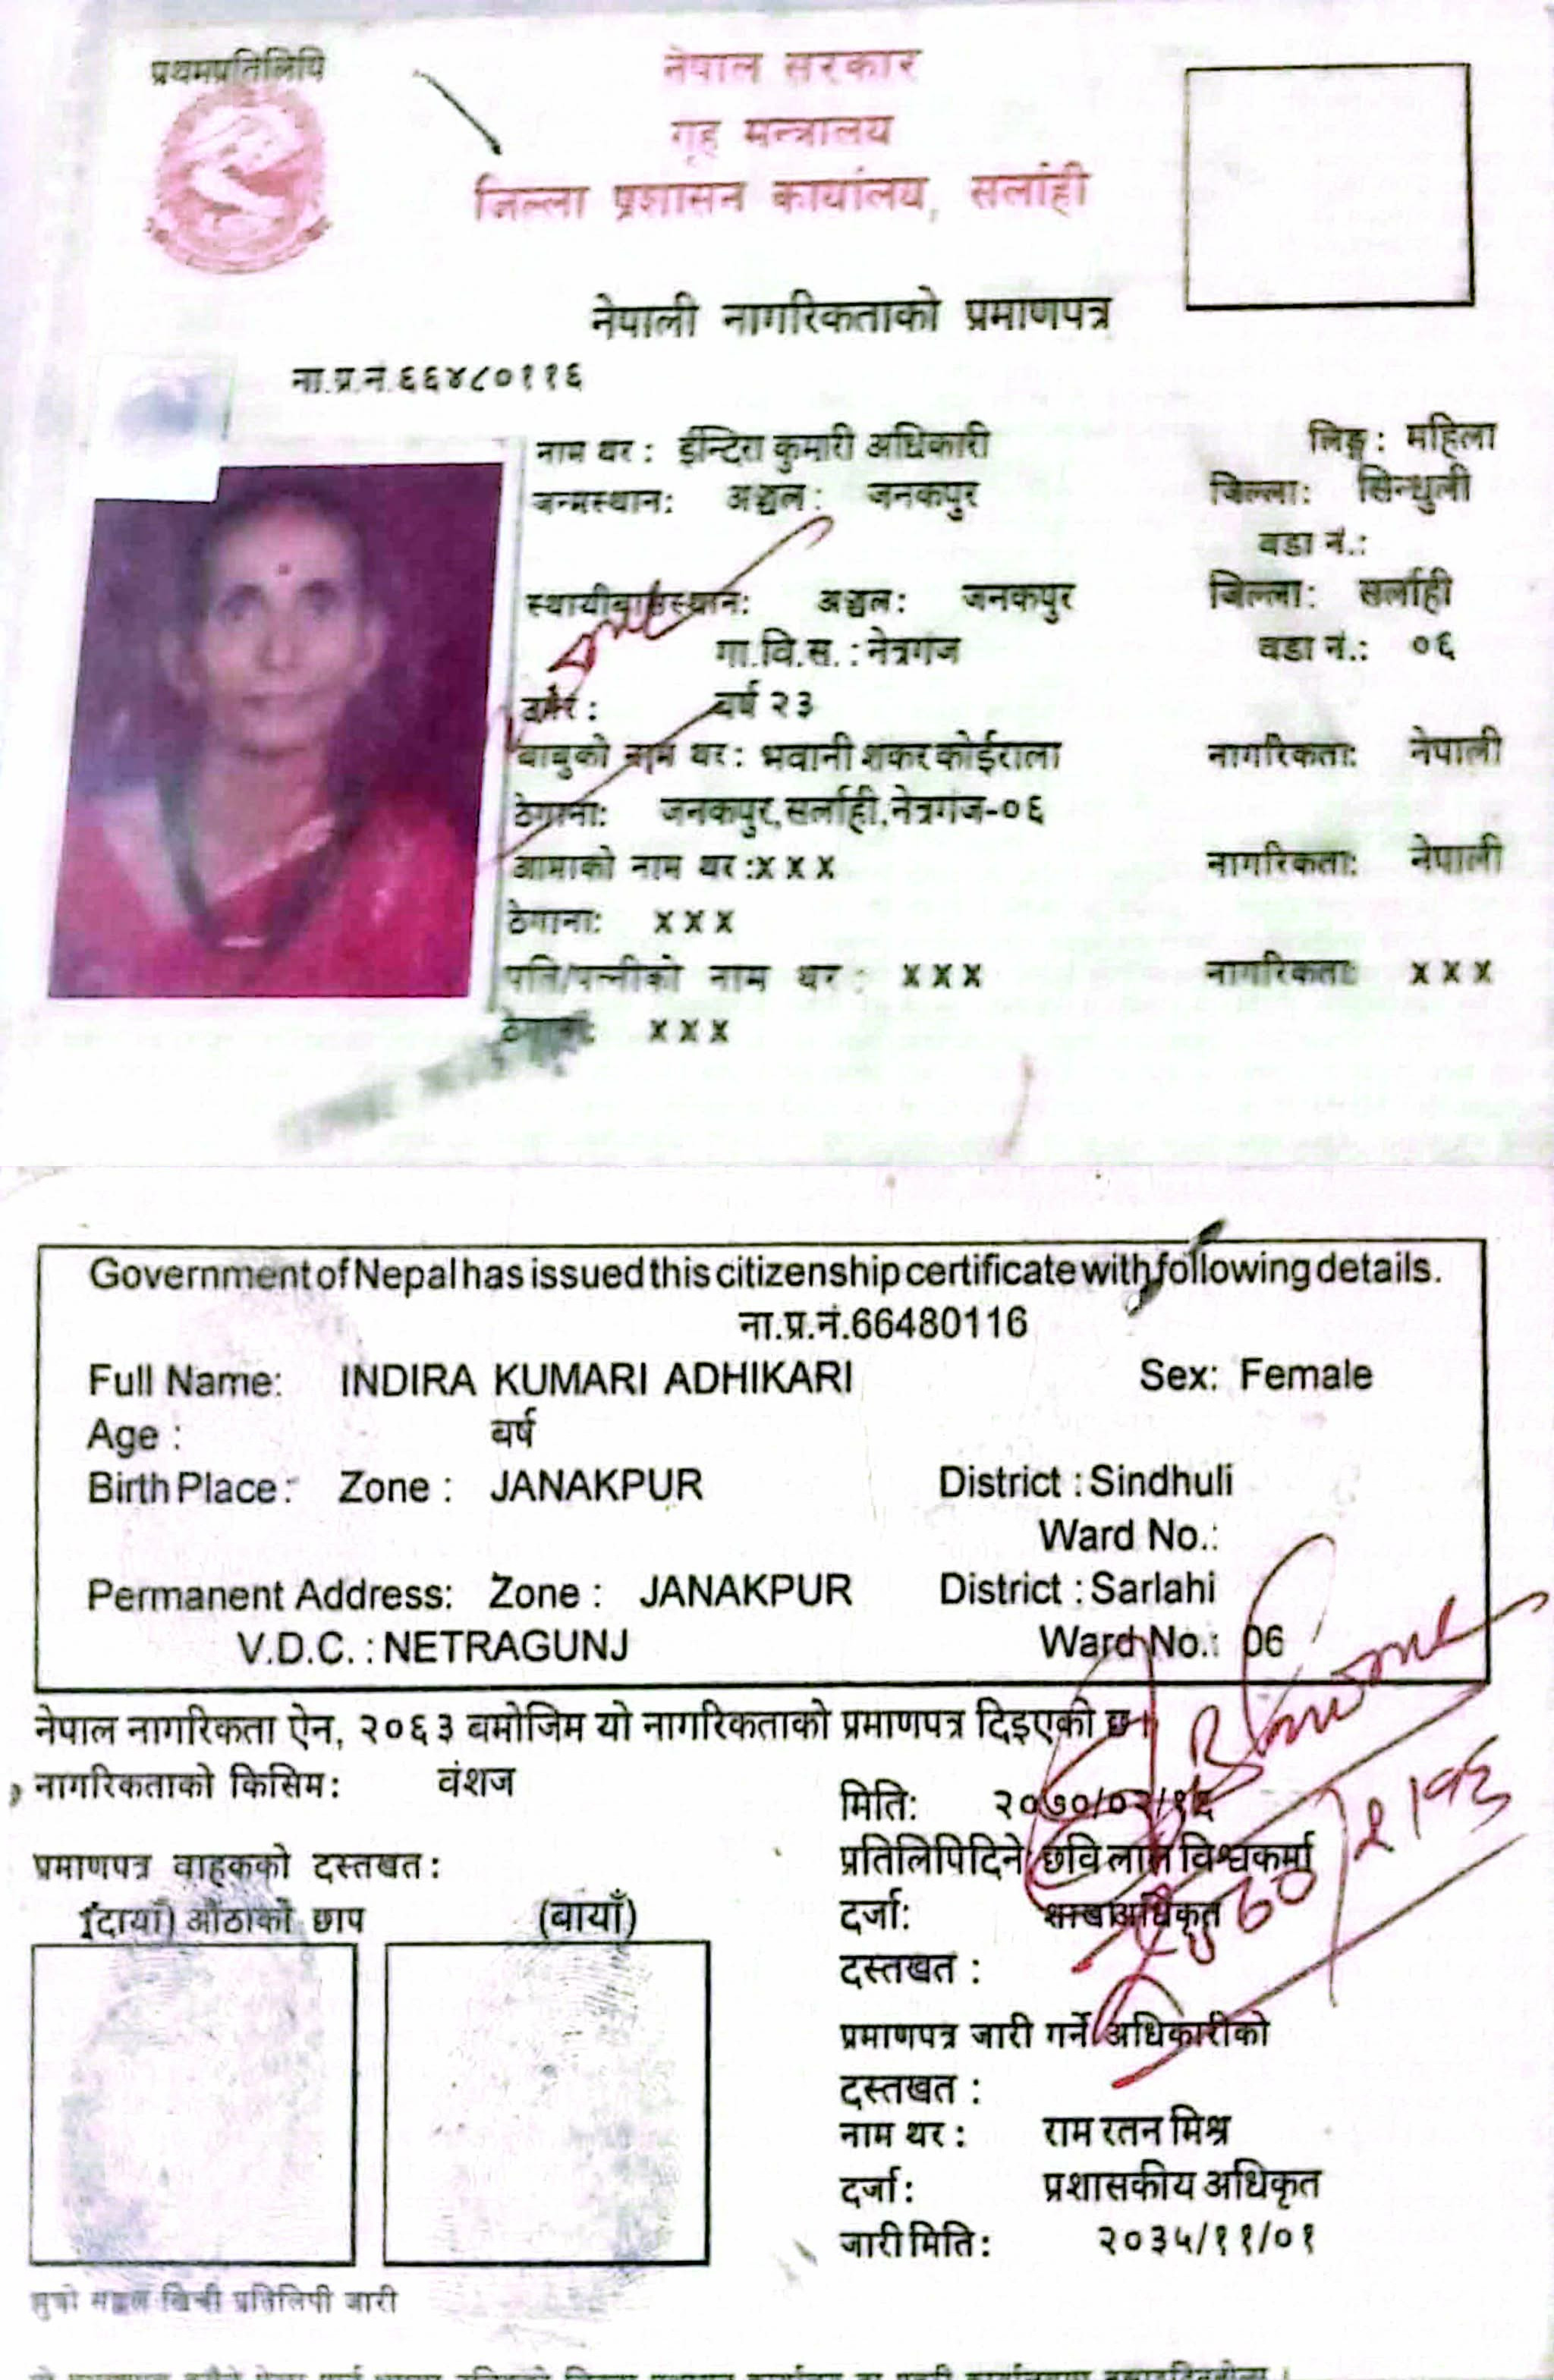 प्रथमप्रतिलिपि
नेपाल सरकार
गृह मन्त्रालय
जिल्ला प्रशासन कार्यालय, सर्लाही
नेपाली नागरिकताको प्रमाणपत्र
ना.प्र.नं.६६४८०११६
नाम थर : ईन्दिरा कुमारी अधिकारी लिङ्ग : महिला
जन्मस्थान: अञ्चल : जनकपुर जिल्ला: सिन्धुली
वडा नं.:
स्थायीबासस्थान: अञ्चल: जनकपुर जिल्ला: सर्लाही
गा.वि.स. : नेत्रगंज वडा नं.: ०६
उमेर : वर्ष २३
बाबुको नाम थर : भवानी शंकर कोईराला नागरिकता: नेपाली
ठेगाना: जनकपुर,सर्लाही,नेत्रगंज-०६
आमाको नाम थर :x x x नागरिकता: नेपाली
ठेगाना: x x x
पति/पत्नीको नाम थर : x x x नागरिकता: x x x
ठेगाना: x x x
Government of Nepal has issued this citizenship certificate with following details.
ना.प्र.नं.66480116
Full Name: INDIRA KUMARI ADHIKARI Sex: Female
Age : वर्ष
Birth Place : Zone : JANAKPUR District : Sindhuli
Ward No.:
Permanent Address: Zone : JANAKPUR District : Sarlahi
V.D.C. : NETRAGUNJ Ward No.: 06
नेपाल नागरिकता ऐन, २०६३ बमोजिम यो नागरिकताको प्रमाणपत्र दिइएको छ।
नागरिकताको किसिम: वंशज
मिति: २०७०/०२/१६
प्रमाणपत्र वाहकको दस्तखत :
प्रतिलिपिदिने छवि लाल विश्वकर्मा
(दायाँ) औंठाको छाप (बायाँ)
दर्जा: शाखाअधिकृत
दस्तखत :
प्रमाणपत्र जारी गर्ने अधिकारीको
दस्तखत :
नाम थर : राम रतन मिश्र
दर्जा : प्रशासकीय अधिकृत
जारी मिति : २०३५/११/०१
प्रतिलिपी जारी